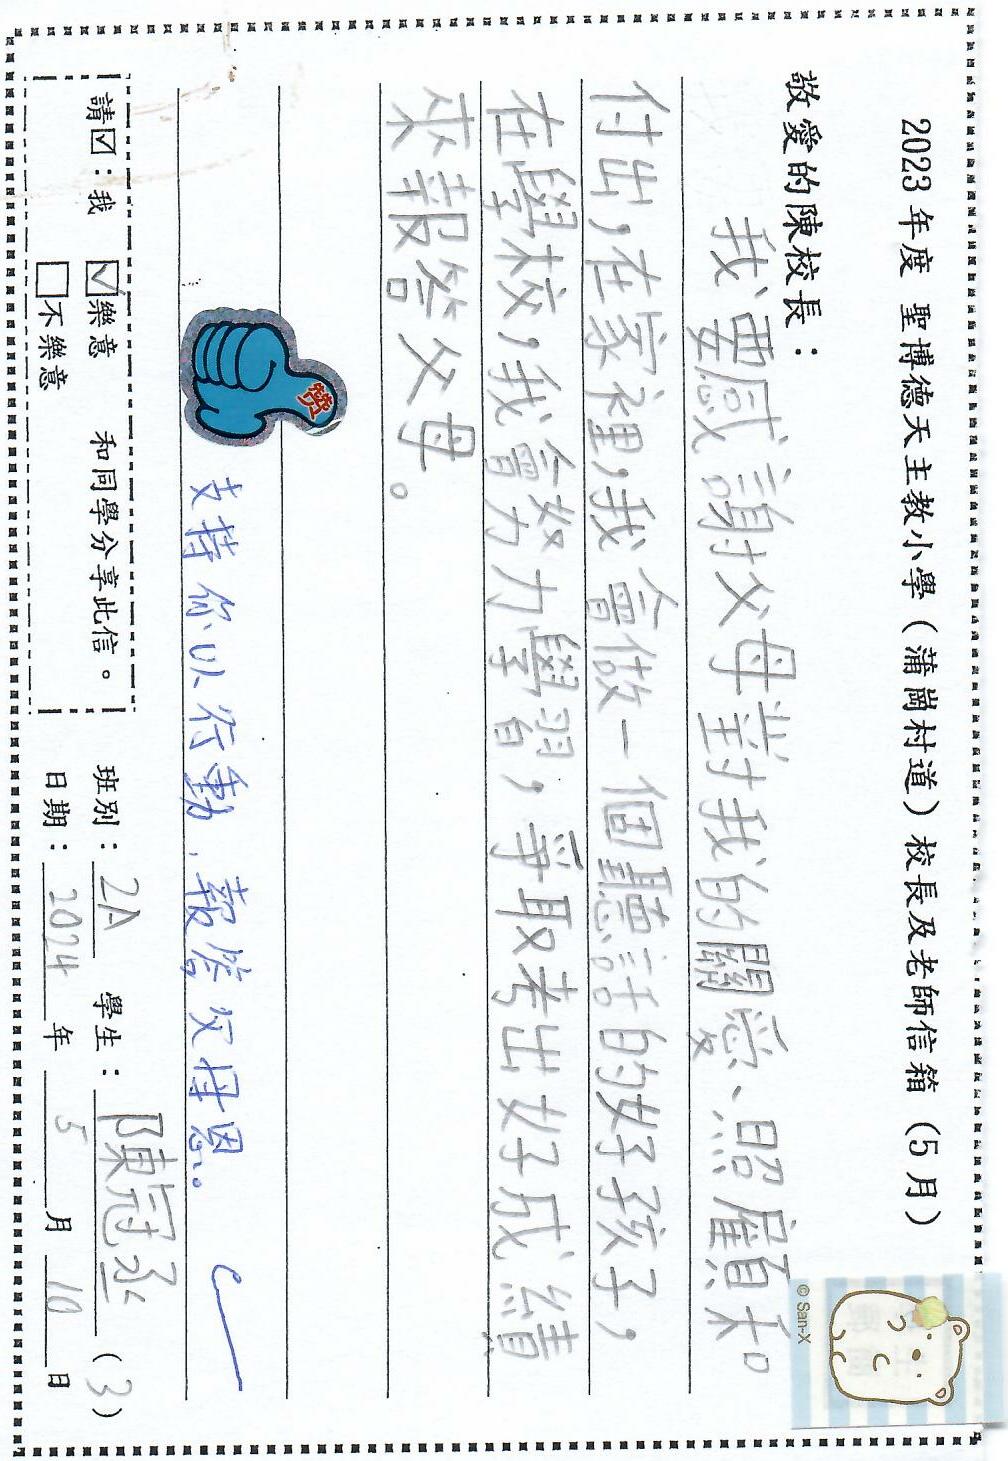 2023 年度 聖博德天主教小學（蒲崗村道）校長及老師信箱（5月）
© San-X
敬愛的陳校長：
我要感謝父母對我的關愛、照顧和
付出，在家裡，我會做一個聽話的好孩子，
在學校，我會努力學習，爭取考出好成績
來報答父母。
赞
支持你以行動，報答父母恩。
請☑：我 ☑樂意 和同學分享此信。
☐不樂意
班別：2A 學生：陳冠丞（3）
日期：2024 年 5 月 10 日